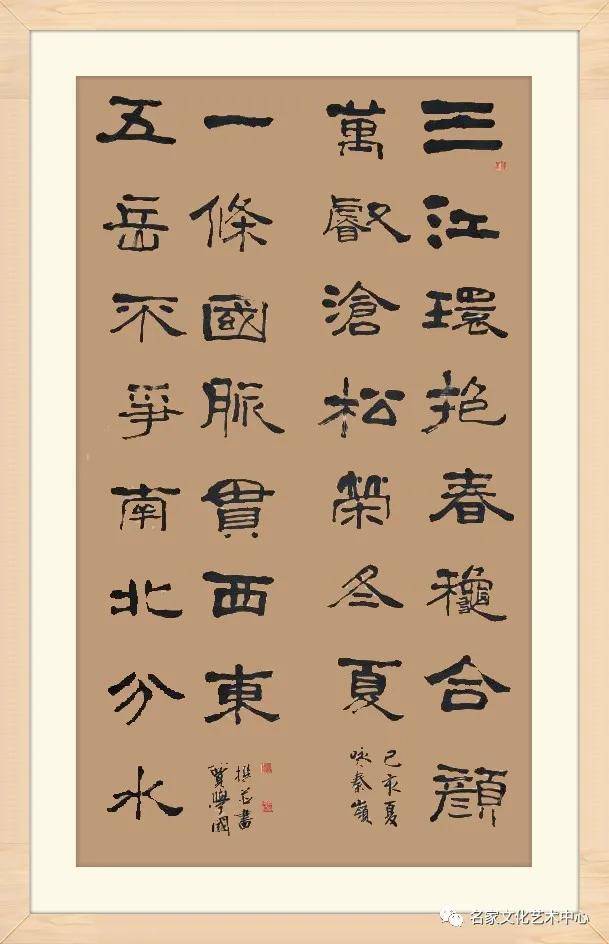 三江環抱春龝合顏
萬叡滄松榮冬夏
己亥夏
咏秦嶺
五岳不爭南北分水
一條國脈貫西東
撰并書
學國
名家文化艺术中心